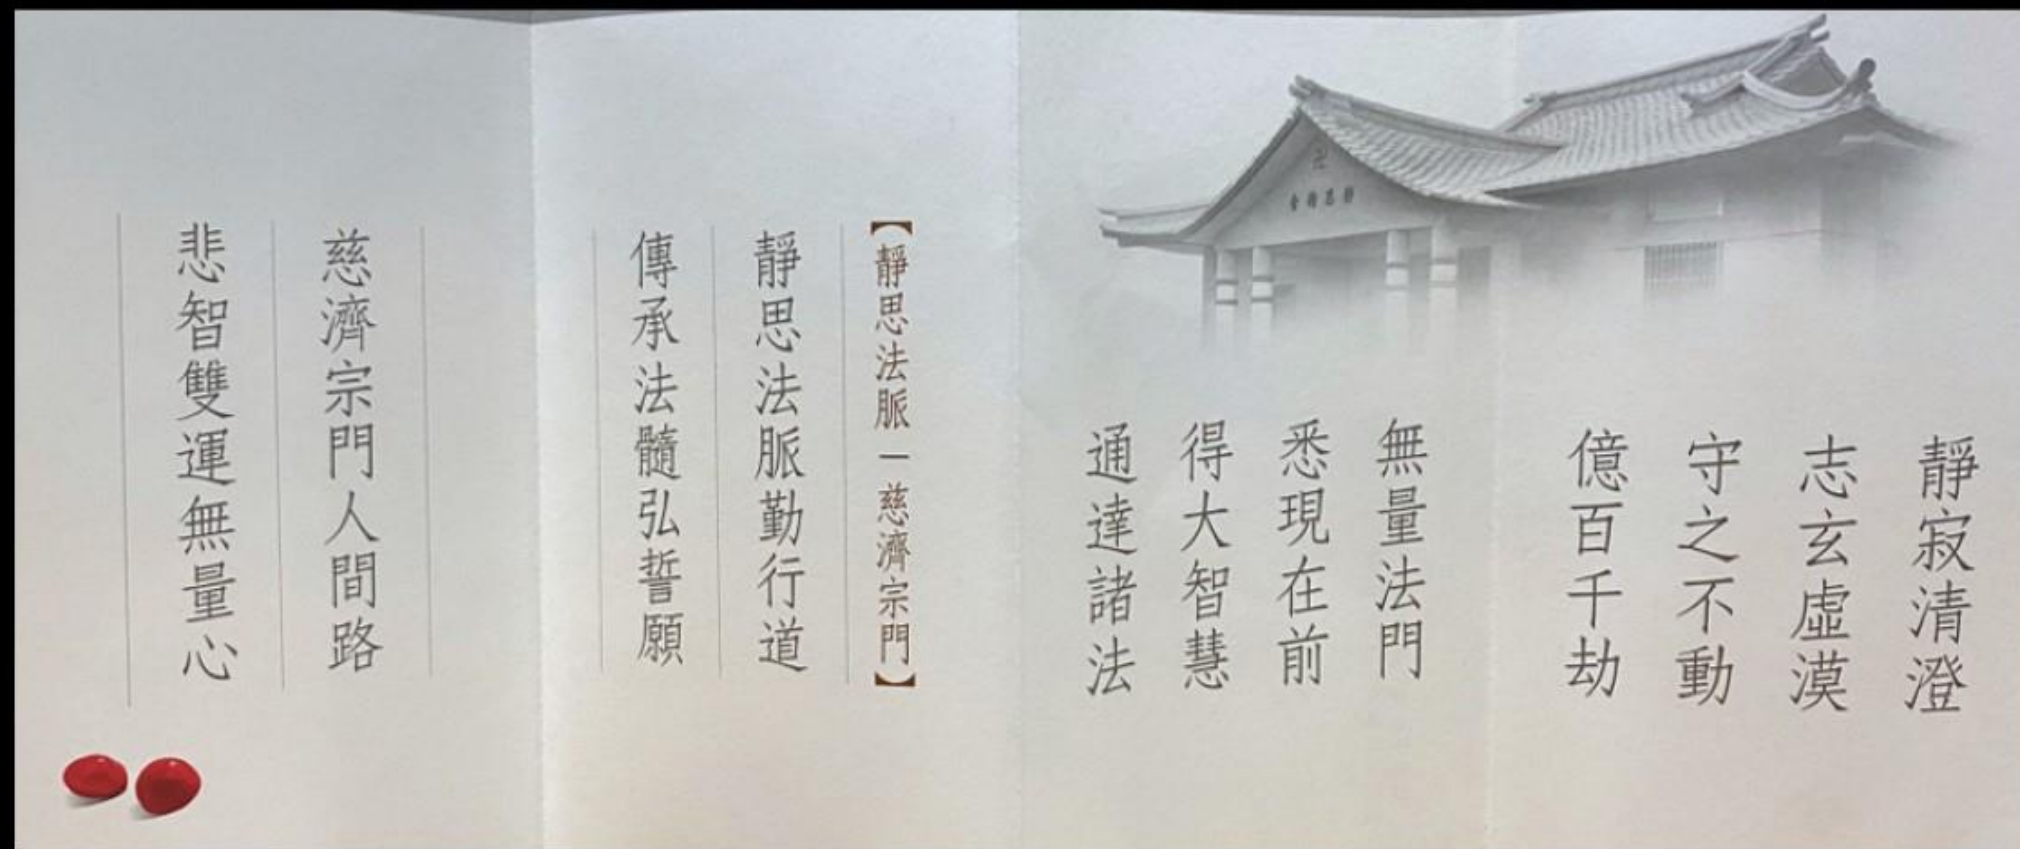 靜寂清澄
志玄虛漠
守之不動
億百千劫
無量法門
悉現在前
得大智慧
通達諸法
靜思精舍
【靜思法脈—慈濟宗門】
靜思法脈勤行道
傳承法髓弘誓願
慈濟宗門人間路
悲智雙運無量心